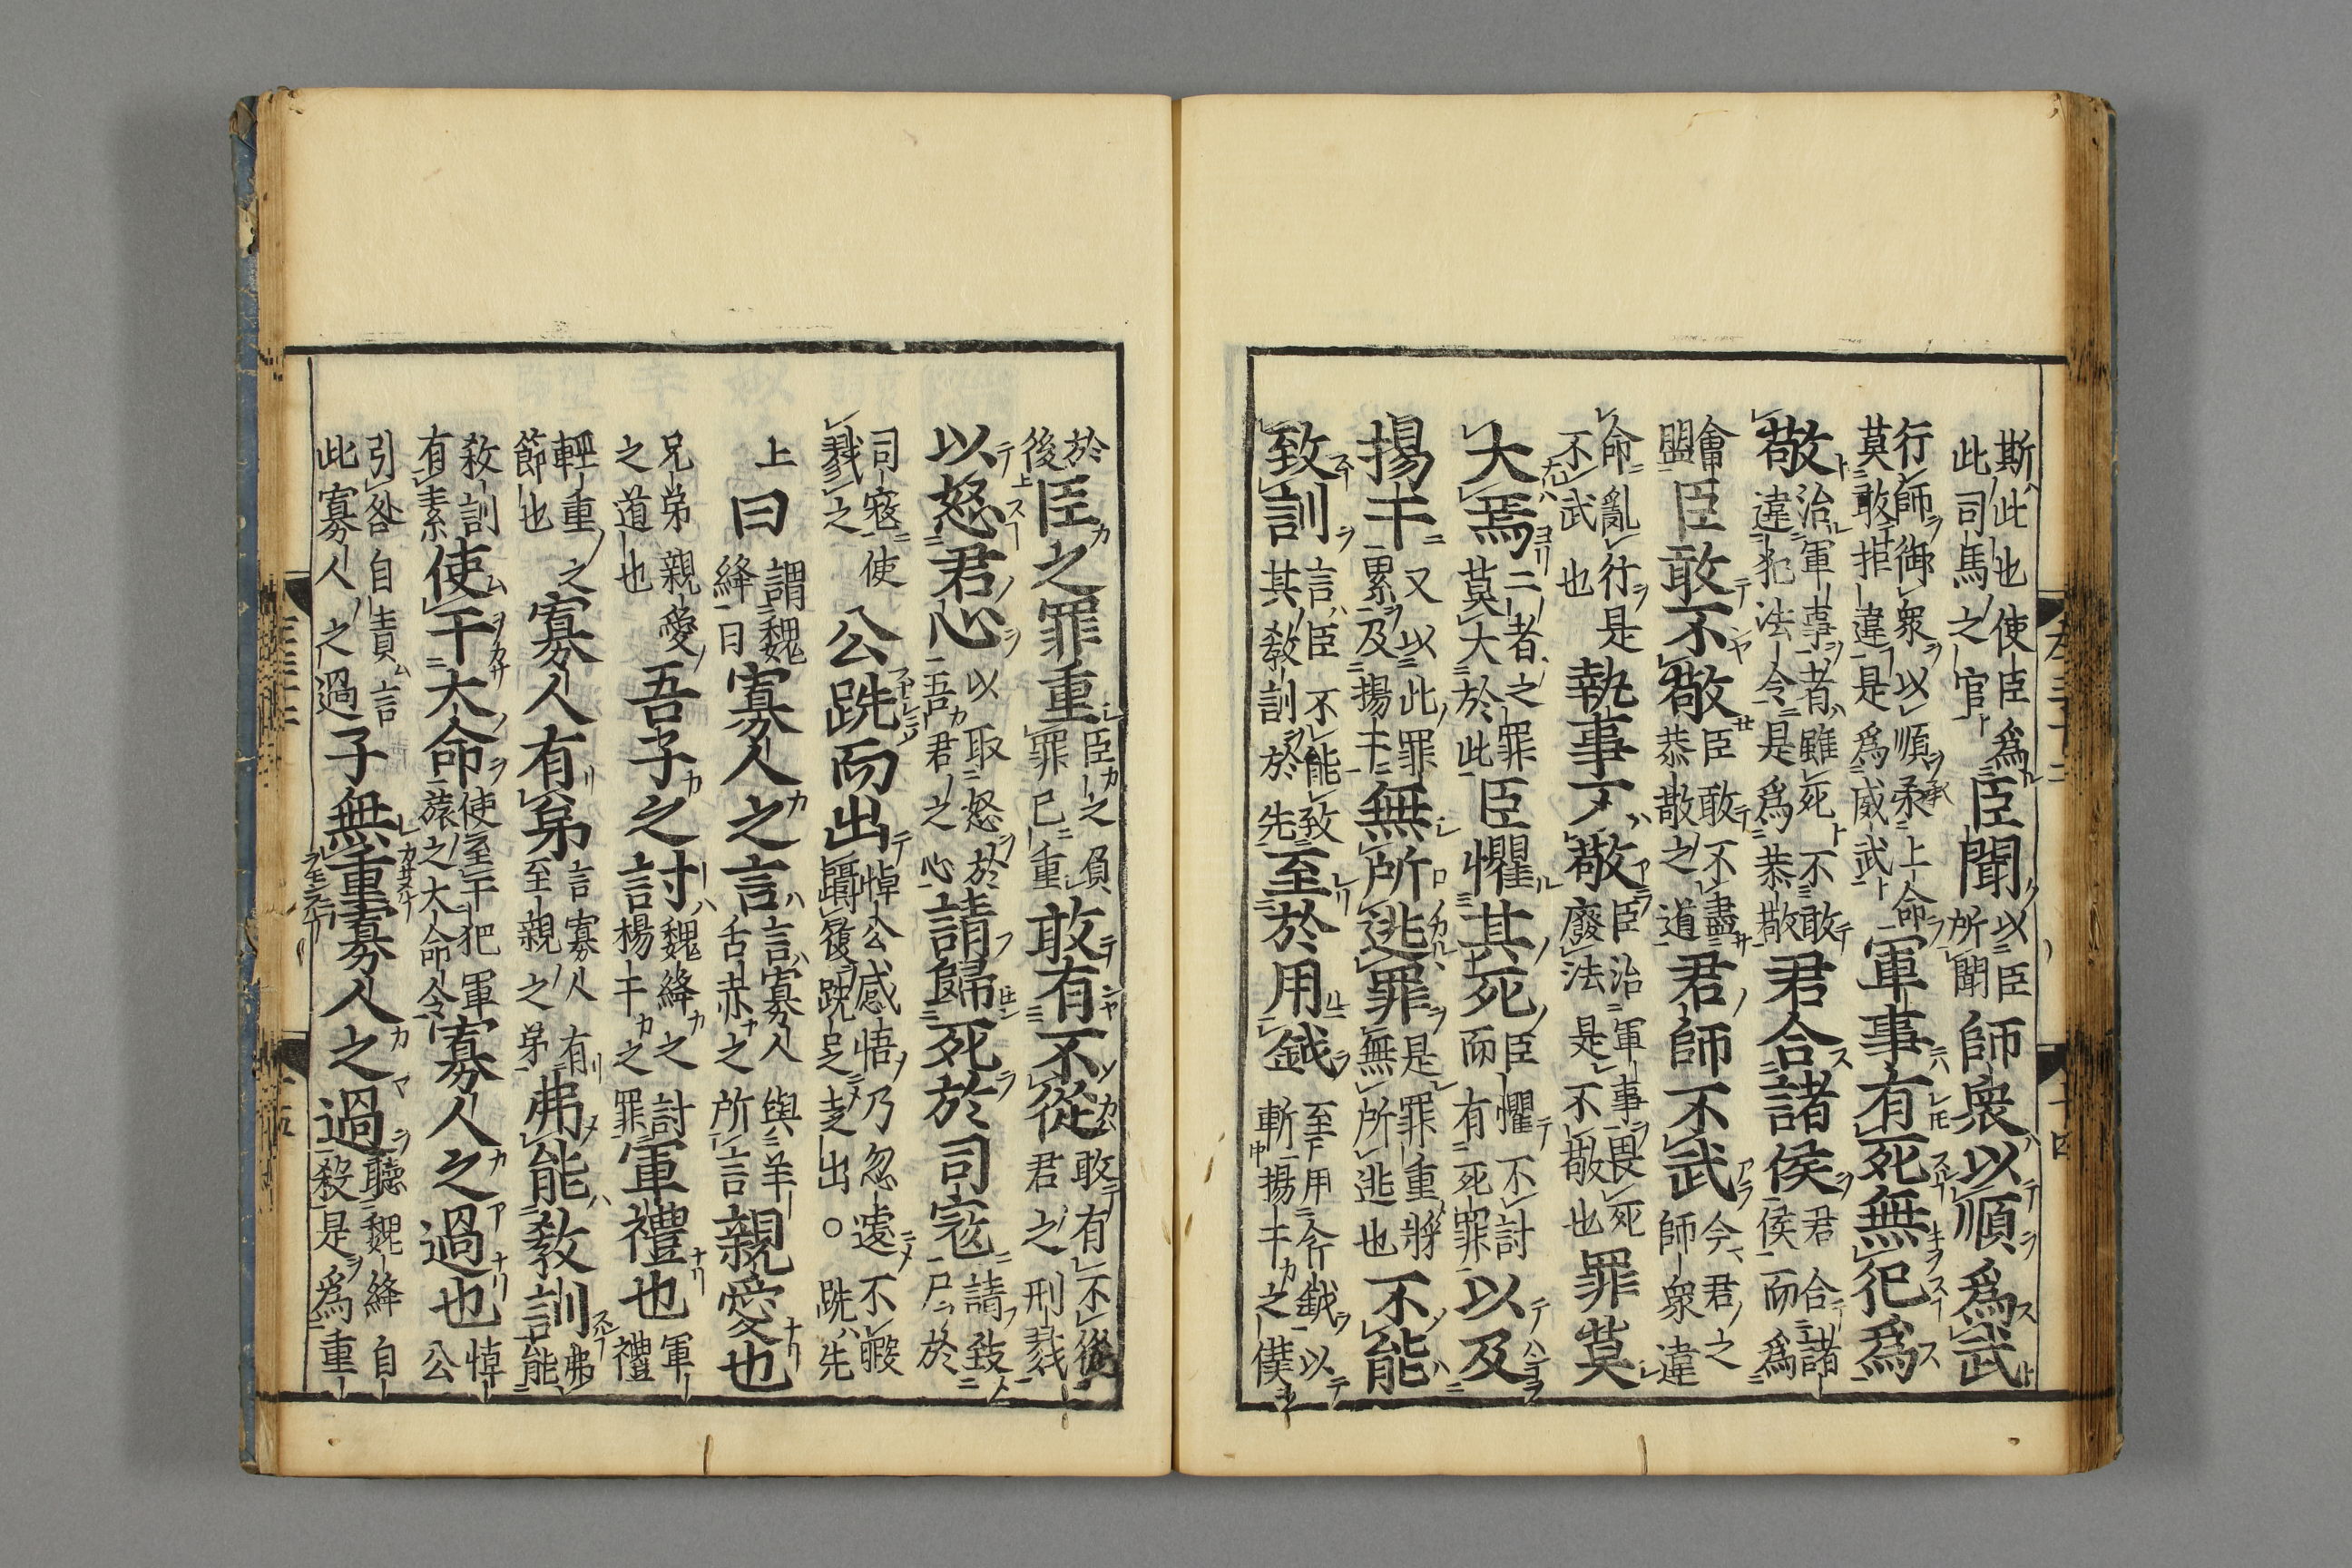 左三十二 十四
斯此也使臣爲此司馬之官臣聞以臣所聞師衆以順爲武
行師御衆以順柔上命莫敢拒違是爲威武軍事有死無犯爲
敬治軍事者雖死不敢違犯法令是爲恭敬君合諸侯君合諸侯而爲
會盟臣敢不敬臣敢不盡恭敬之道君師不武今君之師衆違
命亂行是不武也執事不敬臣治軍事畏死廢法是不敬也罪莫
大焉二者之罪莫大於此臣懼其死臣懼不討而有死罪以及
揚干又以此罪累及揚干無所逃罪是罪重將無所逃也不能
致訓言臣不能致其教訓於先至於用鉞至用斧鉞以斬揚干之僕
於後臣之罪重臣之負罪已重敢有不從敢有不從君之刑戮
以怒君心以取怒於吾君之心請歸死於司寇請致尸於
司寇使戮之公跣而出悼公感悟乃忽遽不暇躡履跣足走出○跣先
上曰謂魏絳曰寡人之言言寡人與羊舌赤之所言親愛也
兄弟親愛之道也吾子之討魏絳之討楊干之罪軍禮也軍禮
輕重之節也寡人有弟言寡人有至親之弟弗能教訓弗能
教訓有素使干大命使至干犯軍旅之大命寡人之過也悼公
引咎自責言此寡人之過子無重寡人之過聽魏絳自殺是爲重